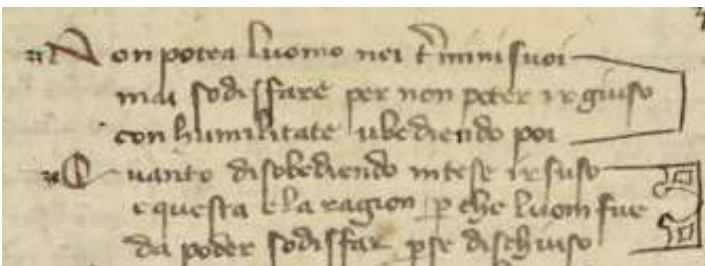 Non potea luomo nei t̄mini suoi
mai sodisfare per non poter ir giuso
con humilitate ubediendo poi
Quanto disobediendo intese ir suso
e questa e la ragion p̱ che luom fue
da poder sodisfar p̱se dischiuso